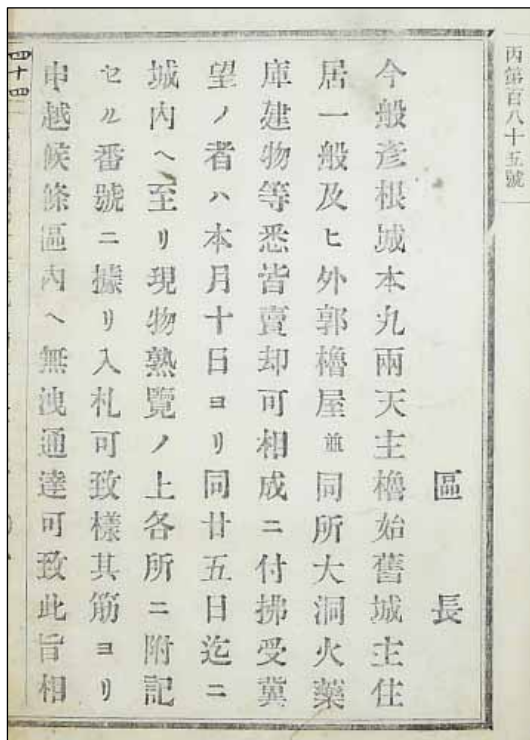 丙第百八十五號
區長
今般彥根城本丸兩天主櫓始舊城主住
居一般及ヒ外郭櫓屋並同所大洞火藥
庫建物等悉皆賣却可相成ニ付拂受冀
望ノ者ハ本月十日ヨリ同廿五日迄ニ
城內ヘ至リ現物熟覽ノ上各所ニ附記
セル番號ニ據リ入札可致樣其筋ヨリ
申越候條區內ヘ無洩通達可致此旨相
四十四